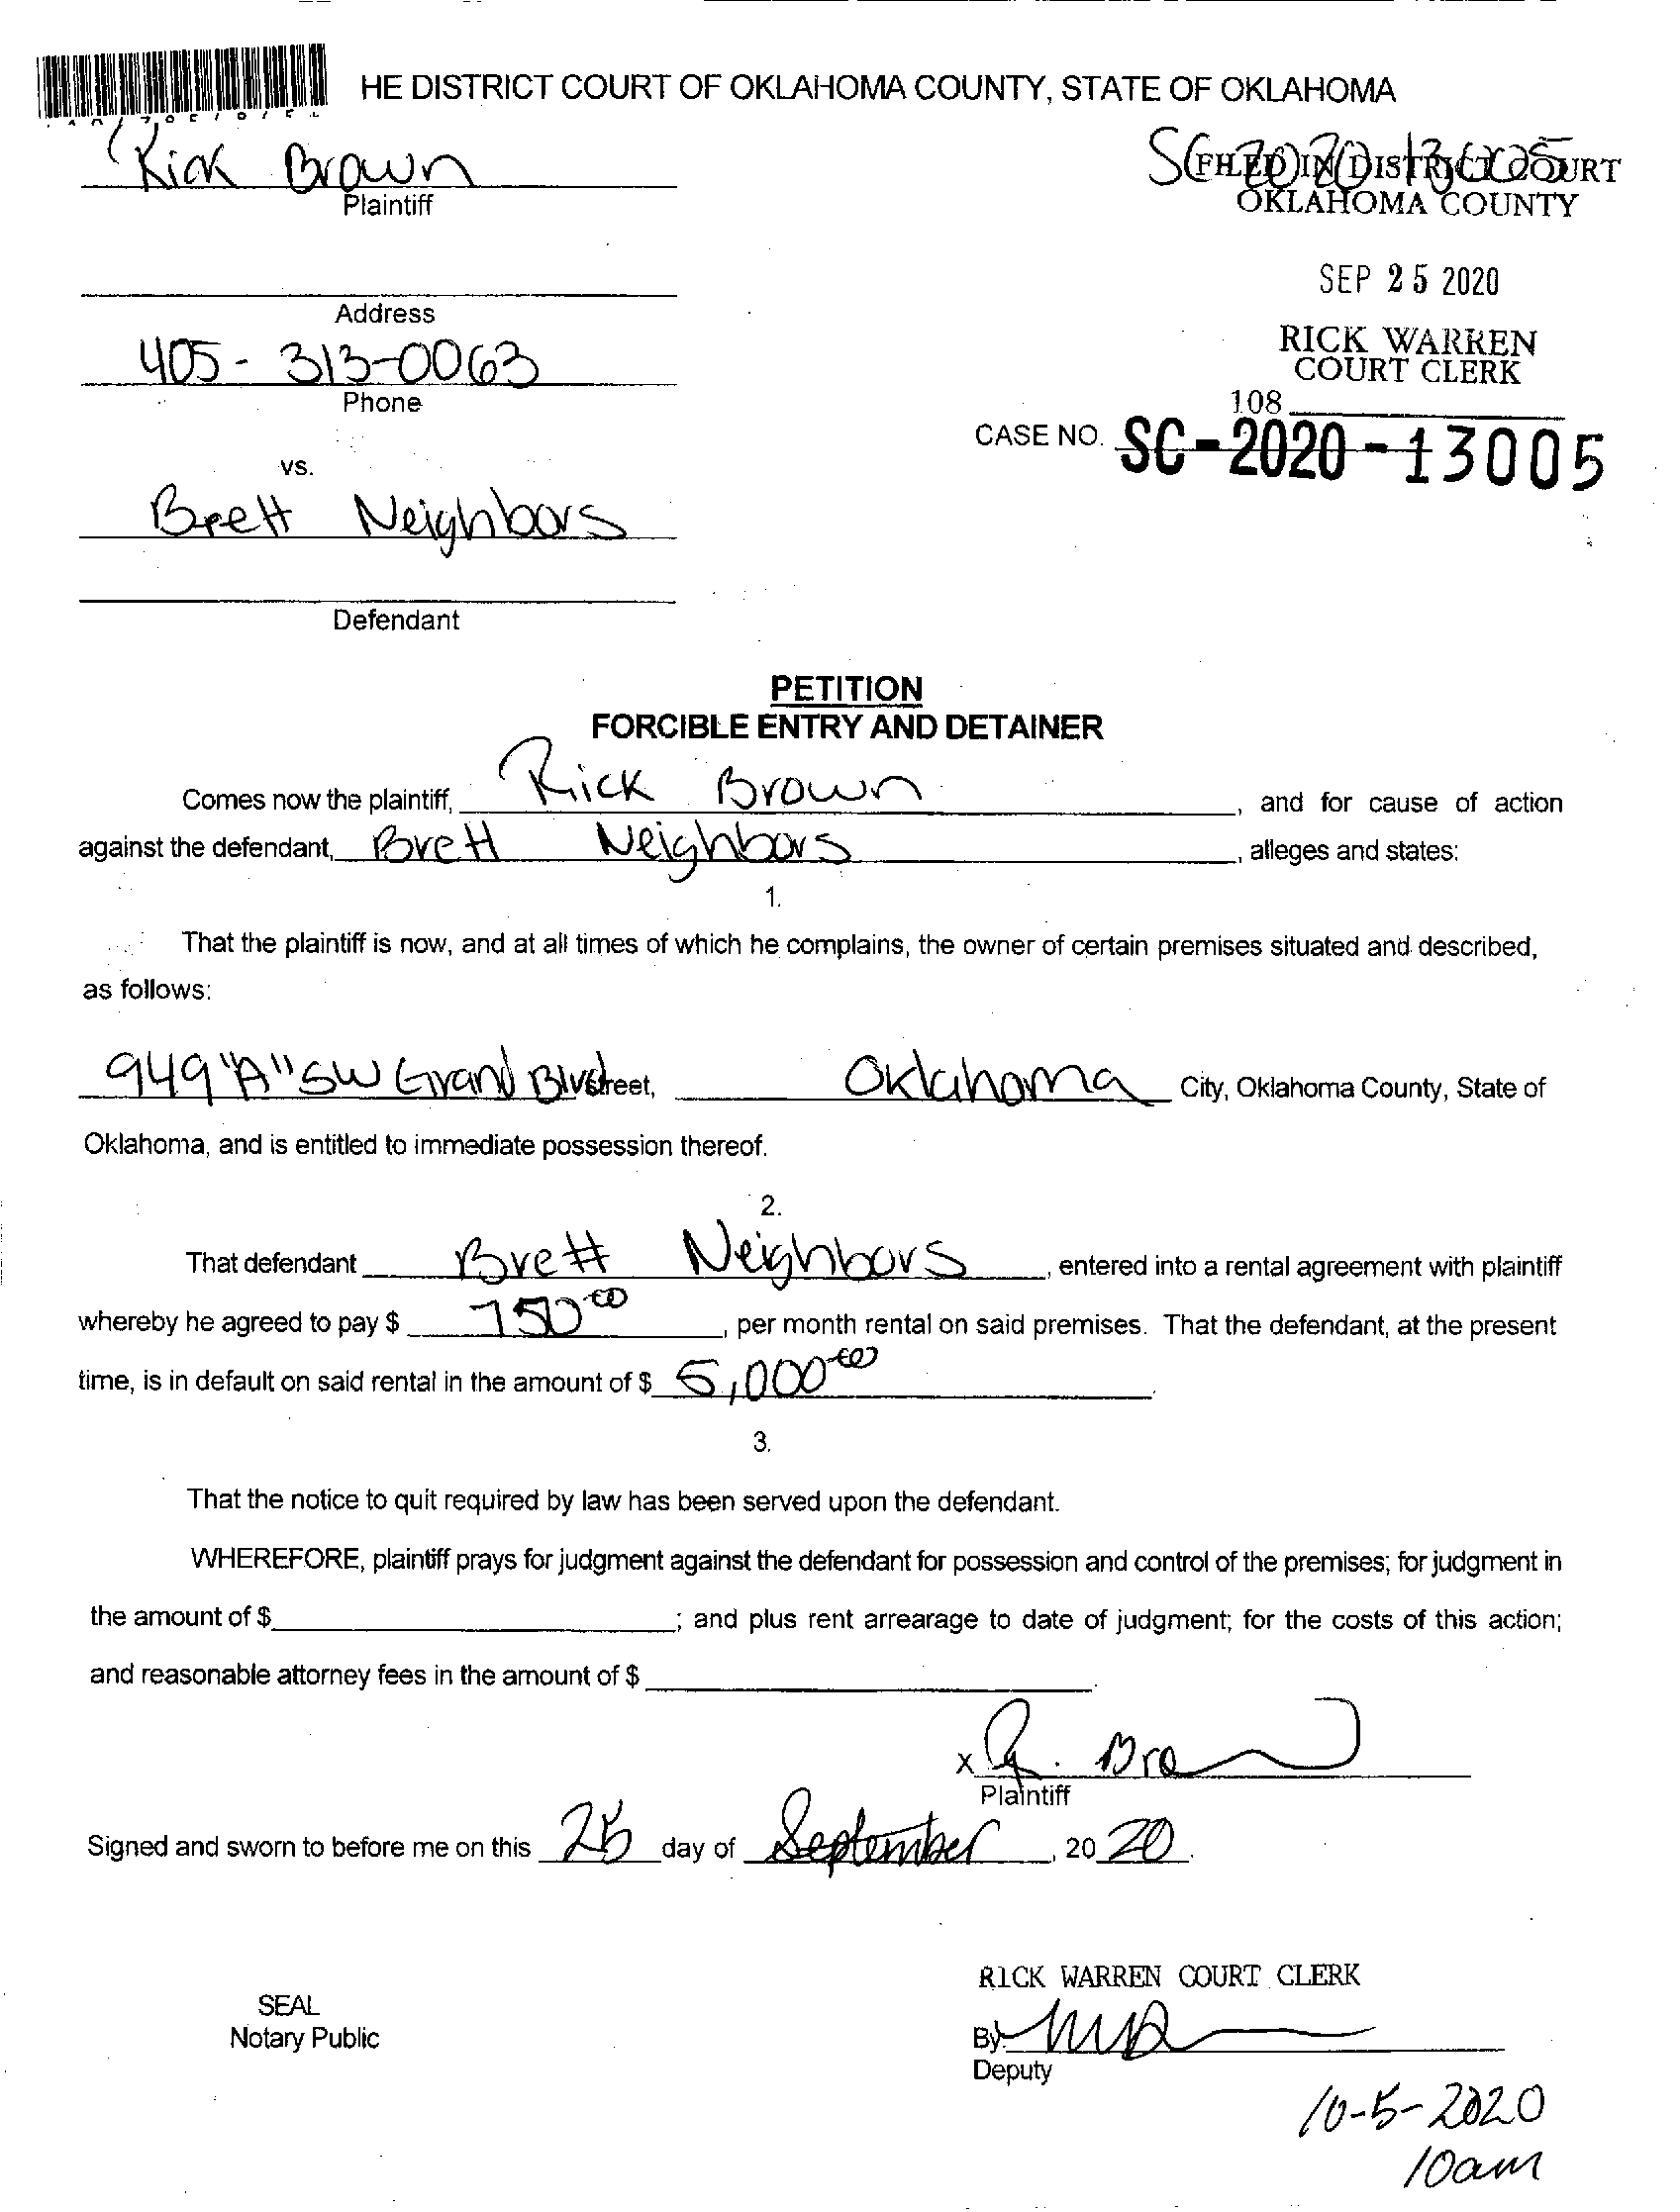 HE DISTRICT COURT OF OKLAHOMA COUNTY, STATE OF OKLAHOMA
Rick Brown
Plaintiff
SC 2020 13005
FILED IN DISTRICT COURT
OKLAHOMA COUNTY
SEP 25 2020
Address
RICK WARREN
COURT CLERK
405-313-0063
Phone
108
CASE NO. SC-2020-13005
vs.
Brett Neighbors
Defendant
PETITION
FORCIBLE ENTRY AND DETAINER
Comes now the plaintiff, Rick Brown, and for cause of action
against the defendant, Brett Neighbors, alleges and states:
1.
That the plaintiff is now, and at all times of which he complains, the owner of certain premises situated and described,
as follows:
949 "A" SW Grand Blv street, Oklahoma City, Oklahoma County, State of
Oklahoma, and is entitled to immediate possession thereof.
2.
That defendant Brett Neighbors, entered into a rental agreement with plaintiff
whereby he agreed to pay $ 750 00, per month rental on said premises. That the defendant, at the present
time, is in default on said rental in the amount of $ 5,000 00.
3.
That the notice to quit required by law has been served upon the defendant.
WHEREFORE, plaintiff prays for judgment against the defendant for possession and control of the premises; for judgment in
the amount of $; and plus rent arrearage to date of judgment; for the costs of this action;
and reasonable attorney fees in the amount of $.
X
Plaintiff
Signed and sworn to before me on this 25 day of September, 2020.
RICK WARREN COURT CLERK
SEAL
Notary Public
By
Deputy
10-5-2020
10am